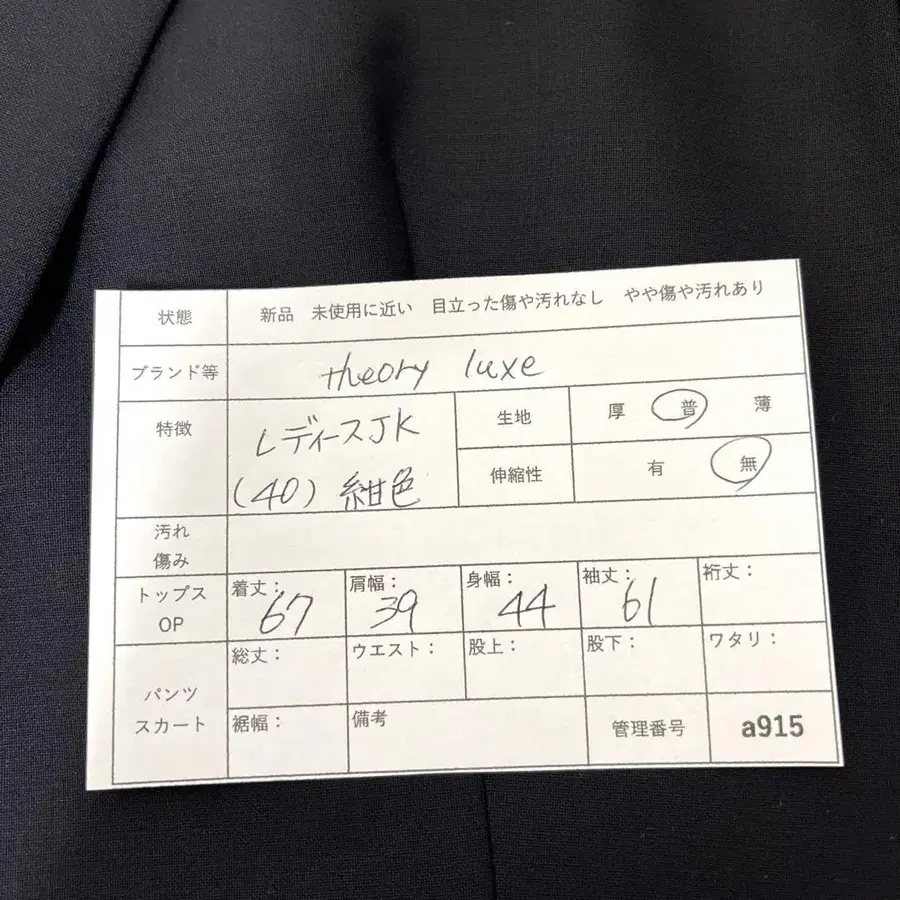 状態 新品 未使用に近い 目立った傷や汚れなし やや傷や汚れあり
ブランド等 theory luxe
特徴 レディースJK
(40) 紺色
生地 厚 普 薄
伸縮性 有 無
汚れ
傷み
トップス
OP
着丈: 67 肩幅: 39 身幅: 44 袖丈: 61 裄丈:
パンツ
スカート
総丈: ウエスト: 股上: 股下: ワタリ:
裾幅: 備考 管理番号 a915